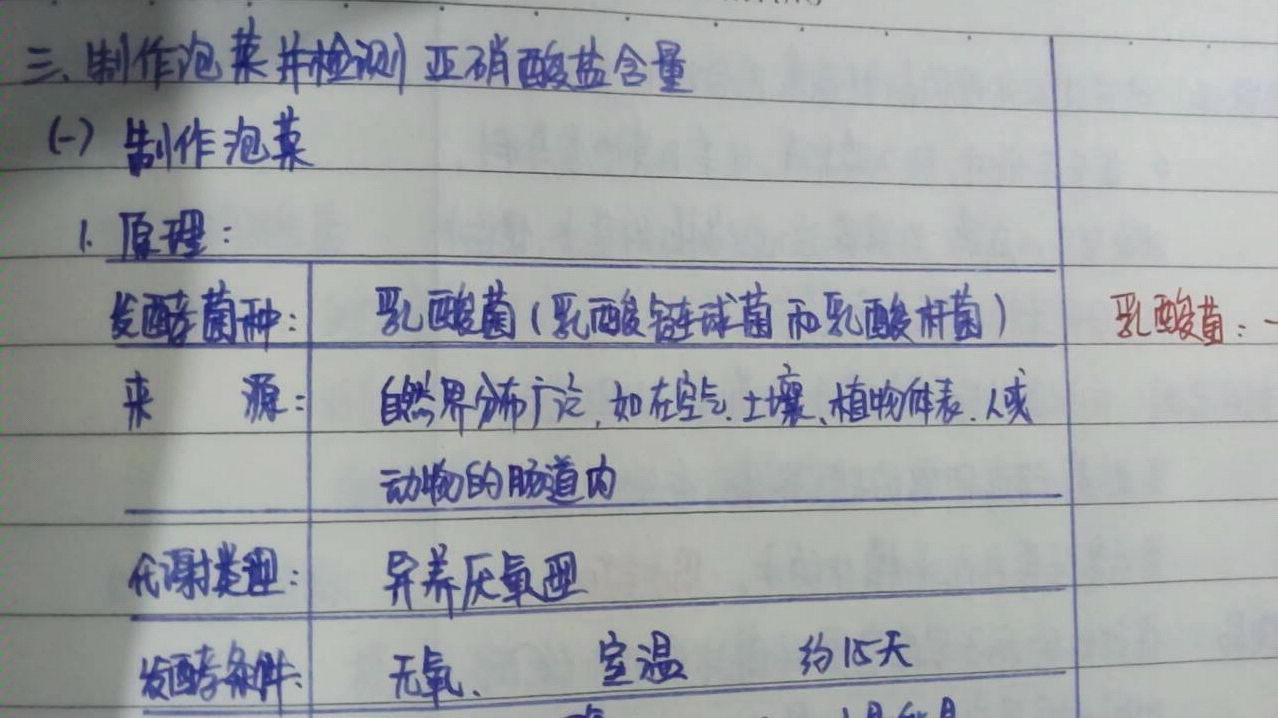 三、制作泡菜并检测亚硝酸盐含量
(一) 制作泡菜
1. 原理:
发酵菌种: 乳酸菌(乳酸链球菌和乳酸杆菌) 乳酸菌:
来 源: 自然界分布广泛,如在空气、土壤、植物体表、人或
动物的肠道内
代谢类型: 异养厌氧型
发酵条件: 无氧、 室温 约15天